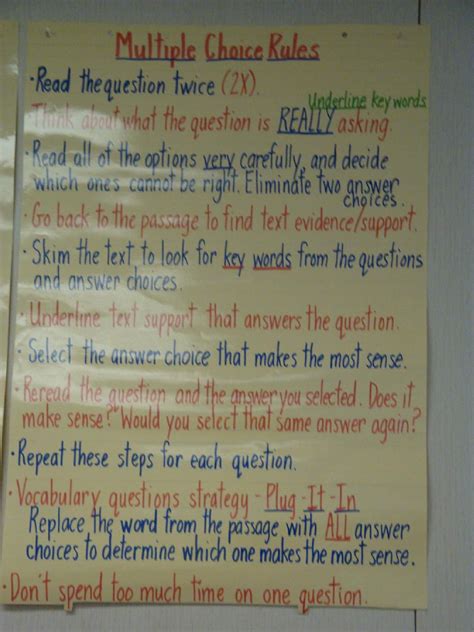 Multiple Choice Rules
• Read the question twice (2X).
Underline key words
• Think about what the question is REALLY asking.
• Read all of the options very carefully, and decide
which ones cannot be right. Eliminate two answer
choices.
• Go back to the passage to find text evidence/support.
• Skim the text to look for key words from the questions
and answer choices.
• Underline text support that answers the question.
• Select the answer choice that makes the most sense.
• Reread the question and the answer you selected. Does it
make sense? Would you select that same answer again?
• Repeat these steps for each question.
• Vocabulary questions strategy - Plug - It - In
Replace the word from the passage with ALL answer
choices to determine which one makes the most sense.
• Don't spend too much time on one question.